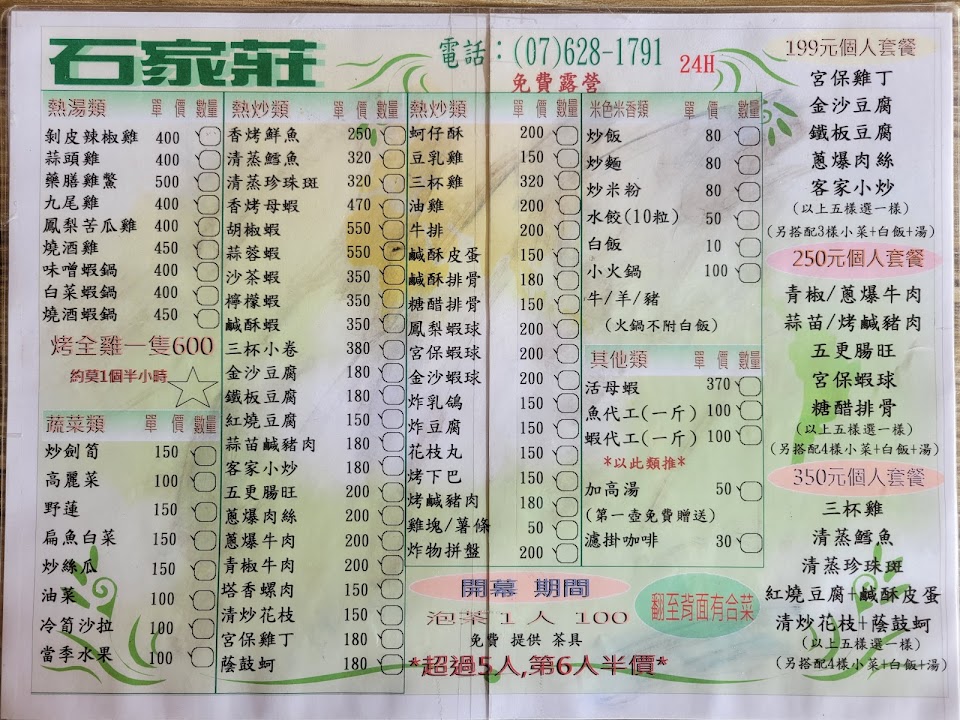 石家莊
電話：(07)628-1791
24H
免費露營
熱湯類 單價 數量
剝皮辣椒雞 400
蒜頭雞 400
藥膳雞鱉 500
九尾雞 400
鳳梨苦瓜雞 400
燒酒雞 450
味噌蝦鍋 400
白菜蝦鍋 400
燒酒蝦鍋 450
烤全雞一隻600
約莫1個半小時
蔬菜類 單價 數量
炒劍筍 150
高麗菜 100
野蓮 150
扁魚白菜 150
炒絲瓜 150
油菜 100
冷筍沙拉 100
當季水果 100
熱炒類 單價 數量
香烤鮮魚 250
清蒸鱈魚 320
清蒸珍珠斑 320
香烤母蝦 470
胡椒蝦 550
蒜蓉蝦 550
沙茶蝦 350
檸檬蝦 350
鹹酥蝦 350
三杯小卷 380
金沙豆腐 180
鐵板豆腐 180
紅燒豆腐 150
蒜苗鹹豬肉 180
客家小炒 180
五更腸旺 200
蔥爆肉絲 200
蔥爆牛肉 200
青椒牛肉 200
塔香螺肉 150
清炒花枝 150
宮保雞丁 180
蔭鼓蚵 180
熱炒類 單價 數量
蚵仔酥 200
豆乳雞 150
三杯雞 320
油雞 200
牛排 200
鹹酥皮蛋 150
鹹酥排骨 180
糖醋排骨 150
鳳梨蝦球 200
宮保蝦球 200
金沙蝦球 200
炸乳鴿 150
炸豆腐 150
花枝丸 150
烤下巴 150
烤鹹豬肉 180
雞塊/薯條 50
炸物拼盤 200
米色米香類 單價 數量
炒飯 80
炒麵 80
炒米粉 80
水餃(10粒) 50
白飯 10
小火鍋 100
牛/羊/豬
(火鍋不附白飯)
其他類 單價 數量
活母蝦 370
魚代工(一斤) 100
蝦代工(一斤) 100
*以此類推*
加高湯 50
(第一壺免費贈送)
濾掛咖啡 30
開幕 期間
泡茶1人 100
免費 提供 茶具
*超過5人,第6人半價*
翻至背面有合菜
199元個人套餐
宮保雞丁
金沙豆腐
鐵板豆腐
蔥爆肉絲
客家小炒
(以上五樣選一樣)
(另搭配3樣小菜+白飯+湯)
250元個人套餐
青椒/蔥爆牛肉
蒜苗/烤鹹豬肉
五更腸旺
宮保蝦球
糖醋排骨
(以上五樣選一樣)
(另搭配4樣小菜+白飯+湯)
350元個人套餐
三杯雞
清蒸鱈魚
清蒸珍珠斑
紅燒豆腐+鹹酥皮蛋
清炒花枝+蔭鼓蚵
(以上五樣選一樣)
(另搭配4樣小菜+白飯+湯)